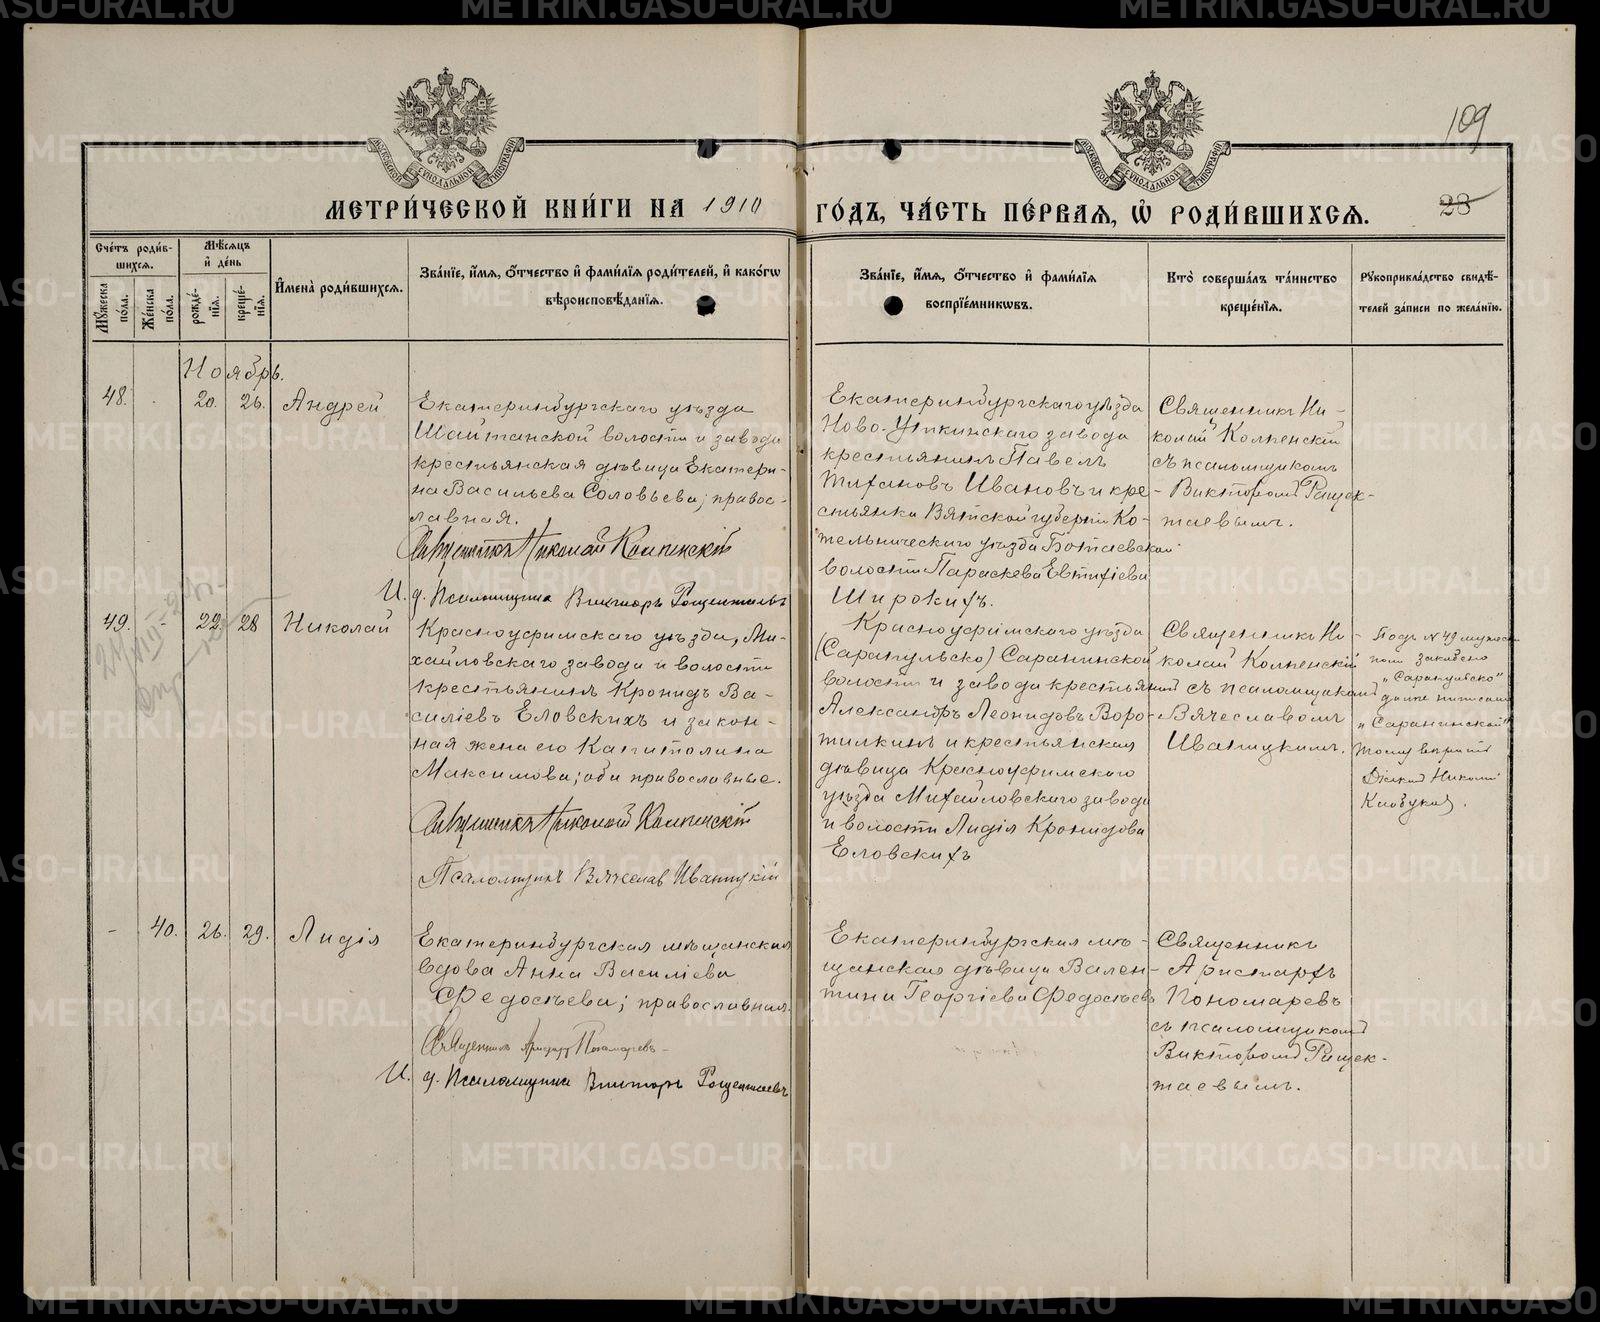 109
МЕТРИ́ЧЕСКОЙ КНИ́ГИ НА 1910 ГО́ДЪ, ЧА́СТЬ ПЕ́РВАѦ, Ѡ РОДИ́ВШИХСѦ.
23
Сче́тъ роди́в-
шихсѧ.
Мѣ́сѧцъ
и де́нь
Мꙋ́жеска
по́ла.
Же́нска
по́ла.
рожде́-
нїѧ.
креще́-
нїѧ.
Имена̀ роди́вшихсѧ.
Зва́нїе, и́мѧ, о́тчество и фами́лїѧ роди́телей, и како́гѡ
вѣроисповѣ́данїѧ.
Зва́нїе, и́мѧ, о́тчество и фами́лїѧ
воспрїе́мникѡвъ.
Кто̀ соверша́лъ та́инство
креще́нїѧ.
Рꙋкоприкла́дство свидѣ́-
телей за́писи по жела́нїю.
Ноябрь.
48.
20.
26.
Андрей
Екатеринбургскаго уѣзда
Шайтанской волости и завода
крестьянская дѣвица Екатери-
на Васильева Соловьева; правос-
лавная.
Священникъ Николай Колпенскій
И. д. Псаломщика Викторъ Ращектаевъ
Екатеринбургскаго уѣзда
Ново-Уткинскаго завода
крестьянинъ Павелъ
Тихановъ Ивановъ и кре-
стьянка Вятской губерніи Ко-
тельническаго уѣзда
волости Параскева Евтихіева
Широкихъ.
Священникъ Ни-
колай Колпенскій
съ псаломщикомъ
Викторомъ Ращек-
таевымъ.
49.
-
22.
28
Николай
Красноуфимскаго уѣзда, Ми-
хайловскаго завода и волости
крестьянинъ Кронидъ Ва-
силіевъ Еловскихъ и закон-
ная жена его Капитолина
Максимова; оба православные.
Священникъ Николай Колпенскій
Псаломщикъ Вячеслав Иваницкій
Красноуфимскаго уѣзда
(Сарапульско) Саранинской
волости и завода крестьянинъ
Александръ Леонидовъ Воро-
тилкинъ и крестьянская
дѣвица Красноуфимскаго
уѣзда Михайловскаго завода
и волости Лидія Кронидова
Еловскихъ
Священникъ Ни-
колай Колпенскій
съ псаломщикомъ
Вячеславомъ
Иваницкимъ.
Подъ № 49 мужеск
пола
„Сарапульско"
далѣе писано
„Саранинской"
Діакон Николай
-
40.
26.
29.
Лидія
Екатеринбургская мѣщанская
вдова Анна Василіева
Федосѣева; православная.
Священникъ Аристархъ Пономаревъ
И. д. Псаломщика Викторъ Ращектаевъ
Екатеринбургская мѣ-
щанская дѣвица Вален-
тина Георгіева Федосѣева
Священникъ
Аристархъ
Пономаревъ
съ псаломщикомъ
Викторомъ Ращек-
таевымъ.